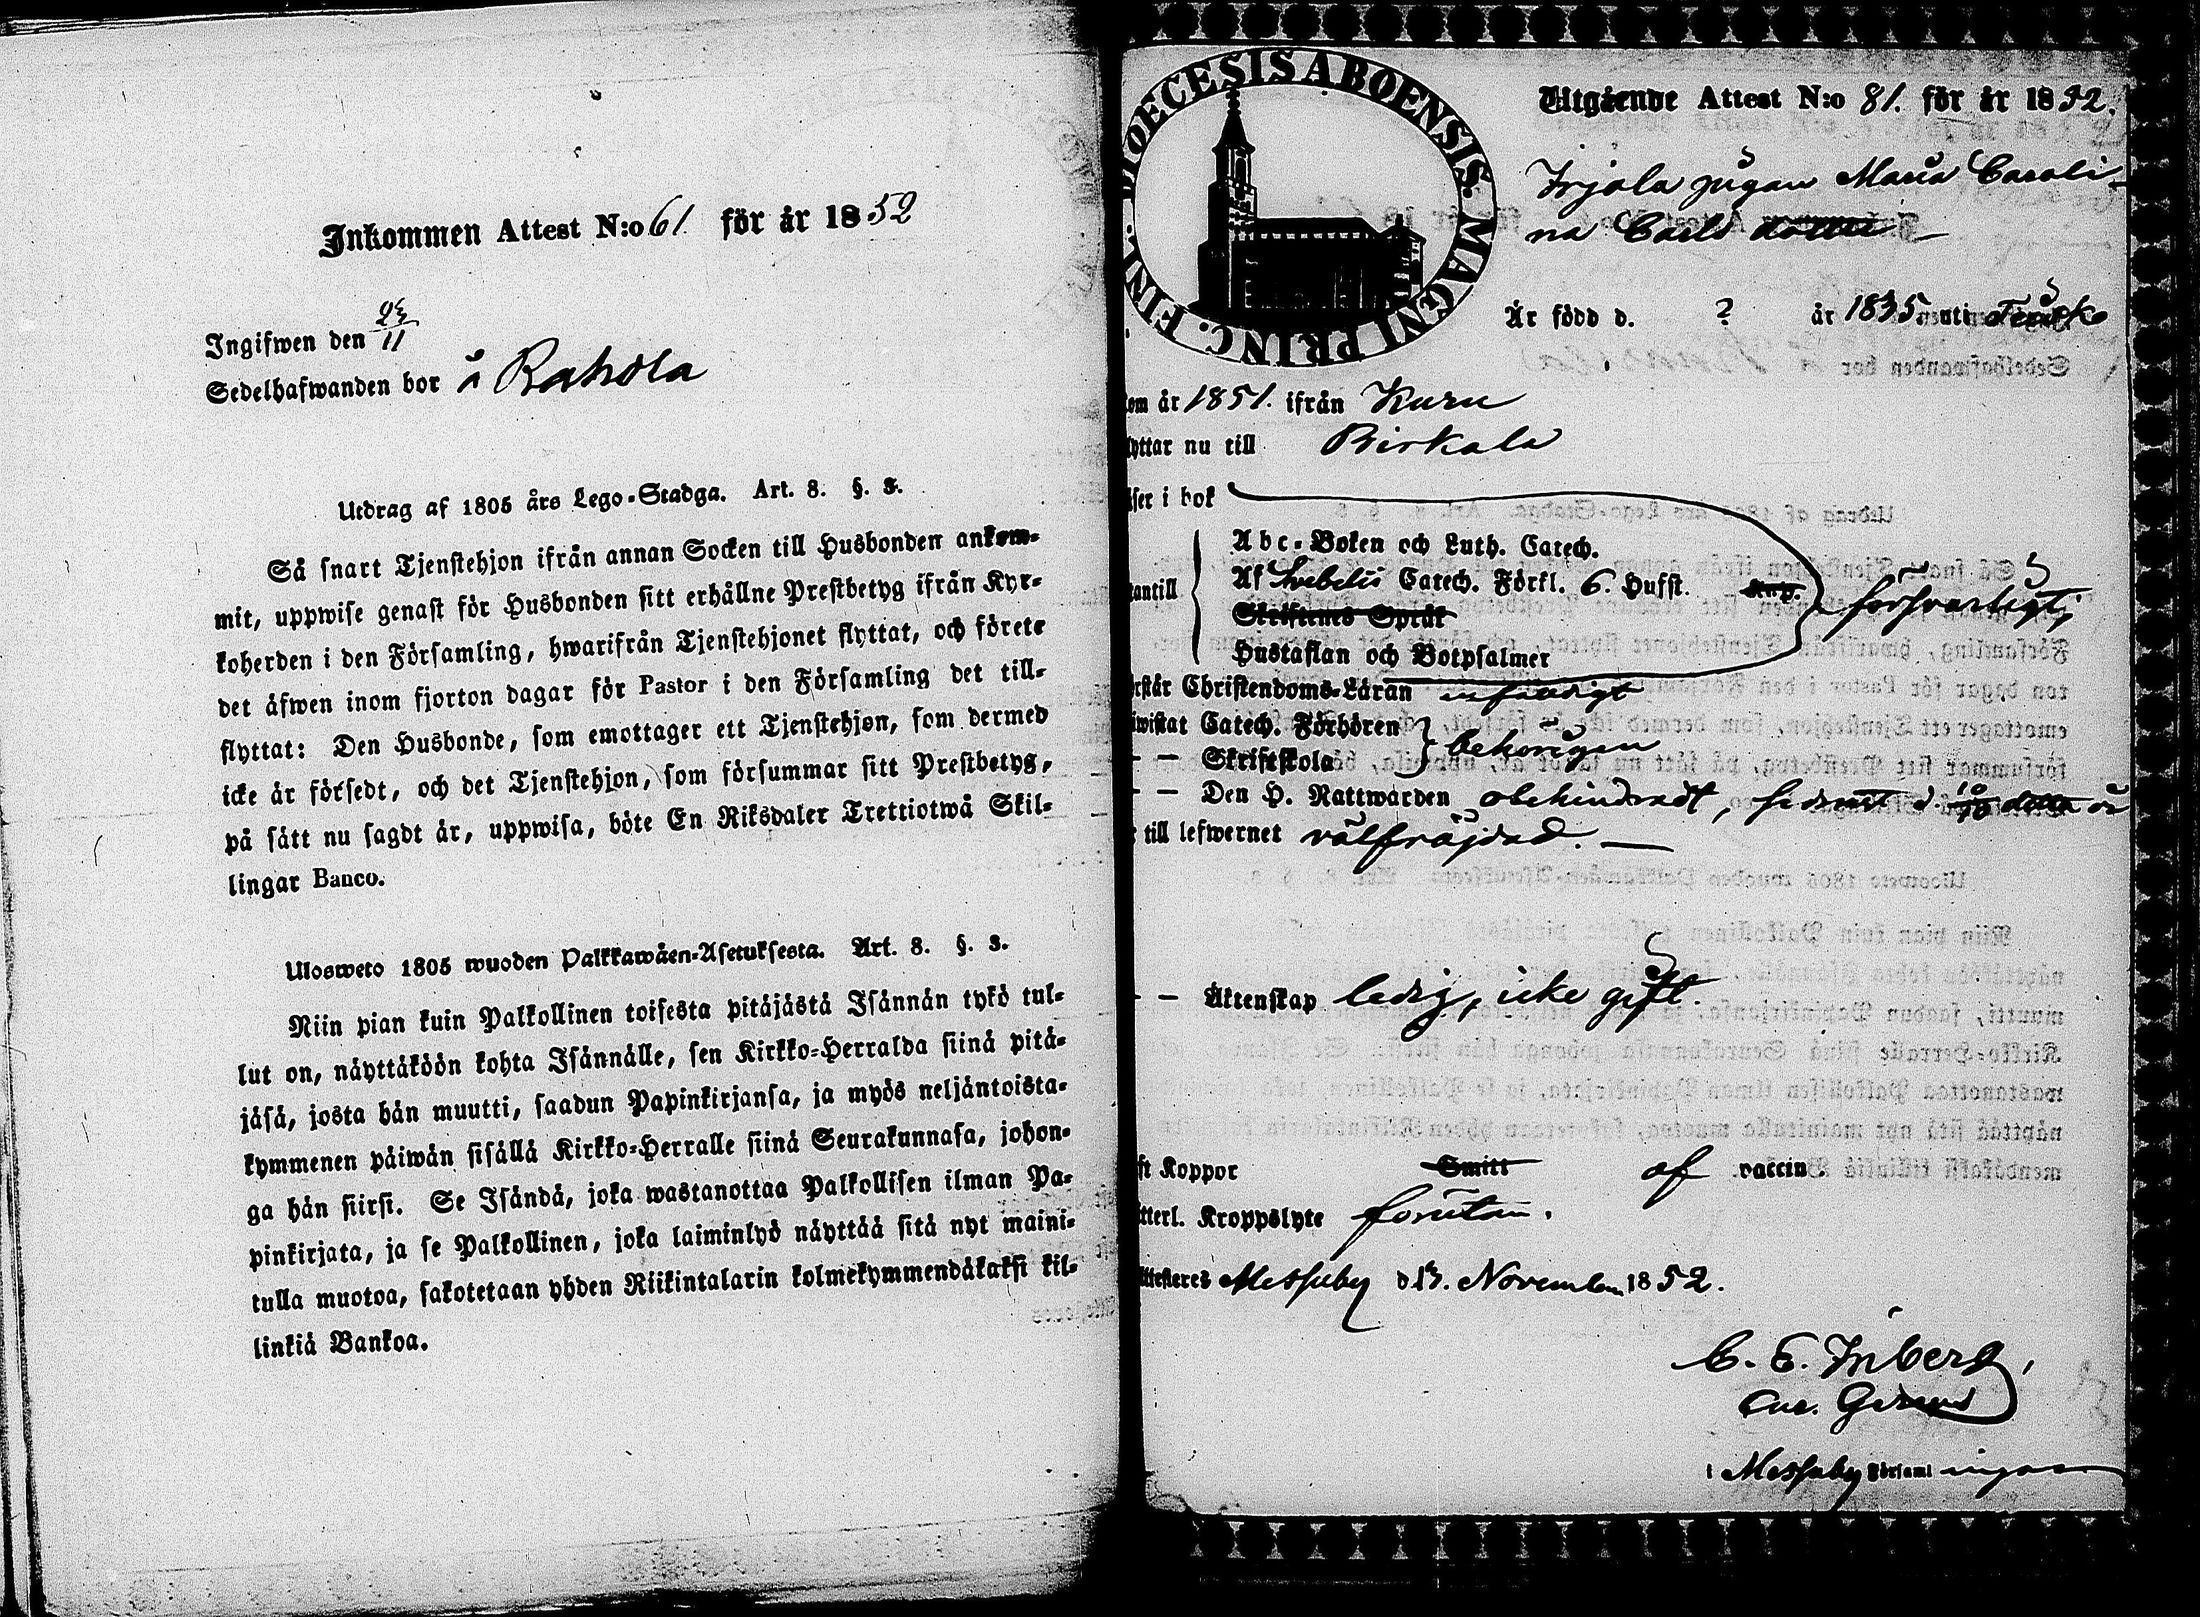 Inkommen Attest N:o 61 för år 1852
Ingifwen den 23/11
Sedelhafwanden bor å Rahola
Utdrag af 1805 års Lego-Stadga. Art. 8. §. 3.
Så snart Tjenstehjon ifrån annan Socken till Husbonden ankom-
mit, uppwise genast för Husbonden sitt erhållne Prestbetyg ifrån Kyr-
koherden i den Församling, hwarifrån Tjenstehjonet flyttat, och förete
det äfwen inom fjorton dagar för Pastor i den Församling det till-
flyttat: Den Husbonde, som emottager ett Tjenstehjon, som dermed
icke är försedt, och det Tjenstehjon, som försummar sitt Prestbetyg,
på sätt nu sagdt är, uppwisa, böte En Riksdaler Trettiotwå Skil-
lingar Banco.
Ulosweto 1805 wuoden Palkkawäen-Asetuksesta. Art. 8. §. 3.
Niin pian kuin Palkollinen toisesta pitäjästä Isännän tykö tul-
lut on, näyttäköön kohta Isännälle, sen Kirkko-Herralda siinä pitä-
jäsä, josta hän muutti, saadun Papinkirjansa, ja myös neljäntoista-
kymmenen päiwän sisällä Kirkko-Herralle siinä Seurakunnasa, johon-
ga hän siirsi. Se Isändä, joka wastanottaa Palkollisen ilman Pa-
pinkirjata, ja se Palkollinen, joka laiminlyö näyttää sitä nyt maini-
tulla muotoa, sakotetaan yhden Riikintalarin kolmekymmendäkaksi kil-
linkiä Bankoa.
DIOECESIS ABOENSIS. MAGNI PRINC. FINL.
Utgående Attest N:o 81. för år 1852.
Irjala pigan Maria Caroli-
na Carls dotter
Är född d. ? år 1835 uti
om år 1851. ifrån Kuru
lyttar nu till Birkala
ser i bok
Abc-Boken och Luth. Catech.
antill Af Svebelii Catech. Förkl. 6. Hufst. försvarligt,
Skriftens Språk
Hustaflan och Botpsalmer
rstår Christendoms-Läran
wistat Catech. Förhören
— — Skriftskola behörigen
— — Den H. Nattwarden obehindradt, sednast d.
till lefwernet välfräjdad.
— — Äktenskap ledig, icke gift.
ft Koppor Smitt af vaccin
tterl. Kroppslyte förutan.
ttesteres Messuby d. 13. November 1852.
C. E. Inberg,
i Messuby Församl